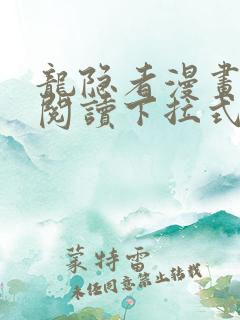 龍隐者漫畫
閱讀下拉式
蒙特雷
未任同意禁止转载